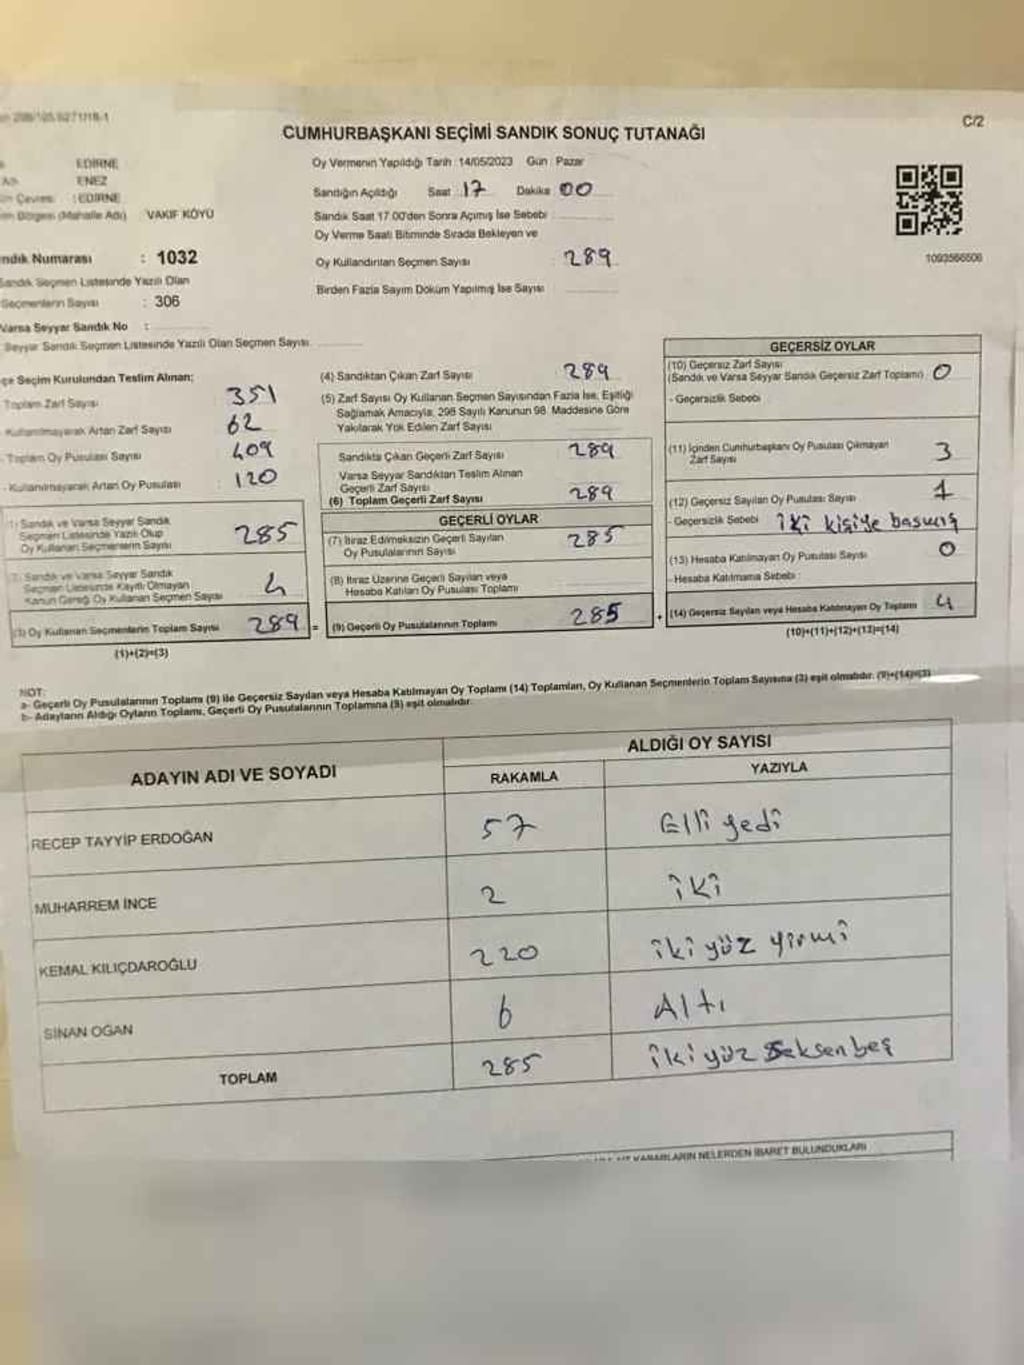 CUMHURBAŞKANI SEÇİMİ SANDIK SONUÇ TUTANAĞI
C/2
EDİRNE
ENEZ
EDİRNE
(Mahalle Adı) VAKIF KÖYÜ
Oy Vermenin Yapıldığı Tarih : 14/05/2023 Gün : Pazar
Sandığın Açıldığı Saat 17 Dakika 00
Sandık Saat 17.00'den Sonra Açımış İse Sebebi
Oy Verme Saati Bitiminde Sırada Bekleyen ve
Oy Kullandırılan Seçmen Sayısı : 289
Birden Fazla Sayım Döküm Yapılmış İse Sayısı
1093566506
ndık Numarası : 1032
Sandık Seçmen Listesinde Yazılı Olan
Seçmenlerin Sayısı : 306
Varsa Seyyar Sandık No :
Seyyar Sandık Seçmen Listesinde Yazılı Olan Seçmen Sayısı
çe Seçim Kurulundan Teslim Alınan:
Toplam Zarf Sayısı 351
- Kullanılmayarak Artan Zarf Sayısı 62
- Toplam Oy Pusulası Sayısı 409
- Kullanılmayarak Artan Oy Pusulası : 120
(1) Sandık ve Varsa Seyyar Sandık
Seçmen Listesinde Yazılı Olup
Oy Kullanan Seçmenlerin Sayısı 285
Sandık ve Varsa Seyyar Sandık
Seçmen Listesinde Kayıtlı Olmayan
Kanun Gereği Oy Kullanan Seçmen Sayısı 4
(3) Oy Kullanan Seçmenlerin Toplam Sayısı 289 =
(1)+(2)=(3)
(4) Sandıktan Çıkan Zarf Sayısı 289
(5) Zarf Sayısı Oy Kullanan Seçmen Sayısından Fazla İse, Eşitliği
Sağlamak Amacıyla, 298 Sayılı Kanunun 98. Maddesine Göre
Yakılarak Yok Edilen Zarf Sayısı
Sandıkta Çıkan Geçerli Zarf Sayısı 289
Varsa Seyyar Sandıktan Teslim Alınan
Geçerli Zarf Sayısı
(6) Toplam Geçerli Zarf Sayısı 289
GEÇERLİ OYLAR
(7) İtiraz Edilmeksizin Geçerli Sayılan
Oy Pusulalarının Sayısı 285
(8) İtiraz Üzerine Geçerli Sayılan veya
Hesaba Katılan Oy Pusulası Toplamı
(9) Geçerli Oy Pusulalarının Toplamı 285 +
GEÇERSİZ OYLAR
(10) Geçersiz Zarf Sayısı
(Sandık ve Varsa Seyyar Sandık Geçersiz Zarf Toplamı) 0
- Geçersizlik Sebebi
(11) İçinden Cumhurbaşkanı Oy Pusulası Çıkmayan
Zarf Sayısı 3
(12) Geçersiz Sayılan Oy Pusulası Sayısı 1
- Geçersizlik Sebebi iki kişiye basmış
(13) Hesaba Katılmayan Oy Pusulası Sayısı 0
- Hesaba Katılmama Sebebi :
(14) Geçersiz Sayılan veya Hesaba Katılmayan Oy Toplamı 4
(10)+(11)+(12)+(13)=(14)
NOT:
a- Geçerli Oy Pusulalarının Toplamı (9) ile Geçersiz Sayılan veya Hesaba Katılmayan Oy Toplamı (14) Toplamları, Oy Kullanan Seçmenlerin Toplam Sayısına (3) eşit olmalıdır. (9)+(14)=(3)
b- Adayların Aldığı Oyların Toplamı, Geçerli Oy Pusulalarının Toplamına (9) eşit olmalıdır.
ADAYIN ADI VE SOYADI
ALDIĞI OY SAYISI
RAKAMLA YAZIYLA
RECEP TAYYİP ERDOĞAN 57 Elli yedi
MUHARREM İNCE 2 iki
KEMAL KILIÇDAROĞLU 220 iki yüz yirmi
SİNAN OĞAN 6 Altı
TOPLAM 285 iki yüz Seksen beş
KARARLARIN NELERDEN İBARET BULUNDUKLARI